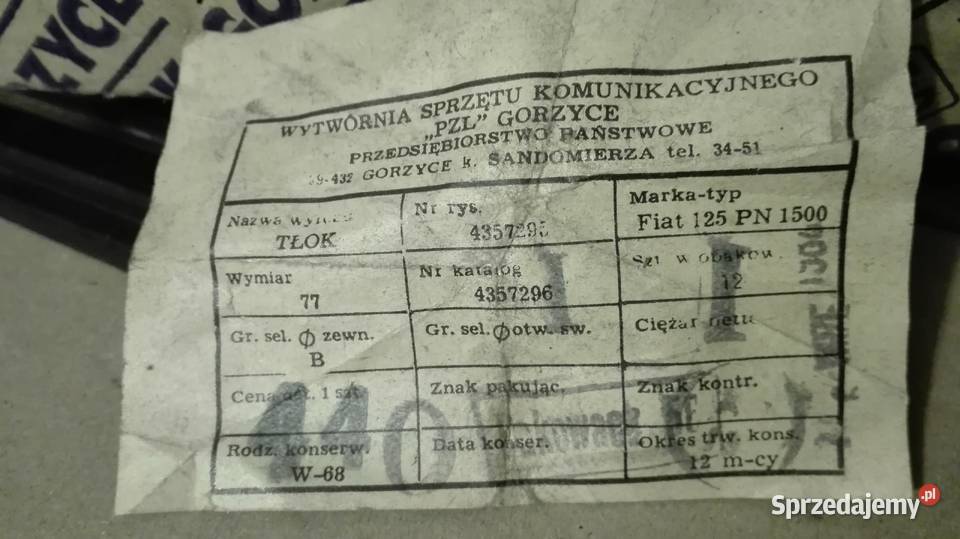 WYTWÓRNIA SPRZĘTU KOMUNIKACYJNEGO
„PZL” GORZYCE
PRZEDSIĘBIORSTWO PAŃSTWOWE
39-432 GORZYCE k. SANDOMIERZA tel. 34-51
Nazwa
TŁOK
Nr rys.
4357295
Marka-typ
Fiat 125 PN 1500
Wymiar
77
Nr katalog
4357296
Szt w opakow.
12
Gr. sel. ϕ zewn.
B
Gr. sel. ϕ otw. sw.
Ciężar netto
Cena det. 1 szt.
Znak pakując.
Znak kontr.
110
Rodz. konserw.
W-68
Data konser.
Okres trw. kons.
12 m-cy
Sprzedajemy.pl